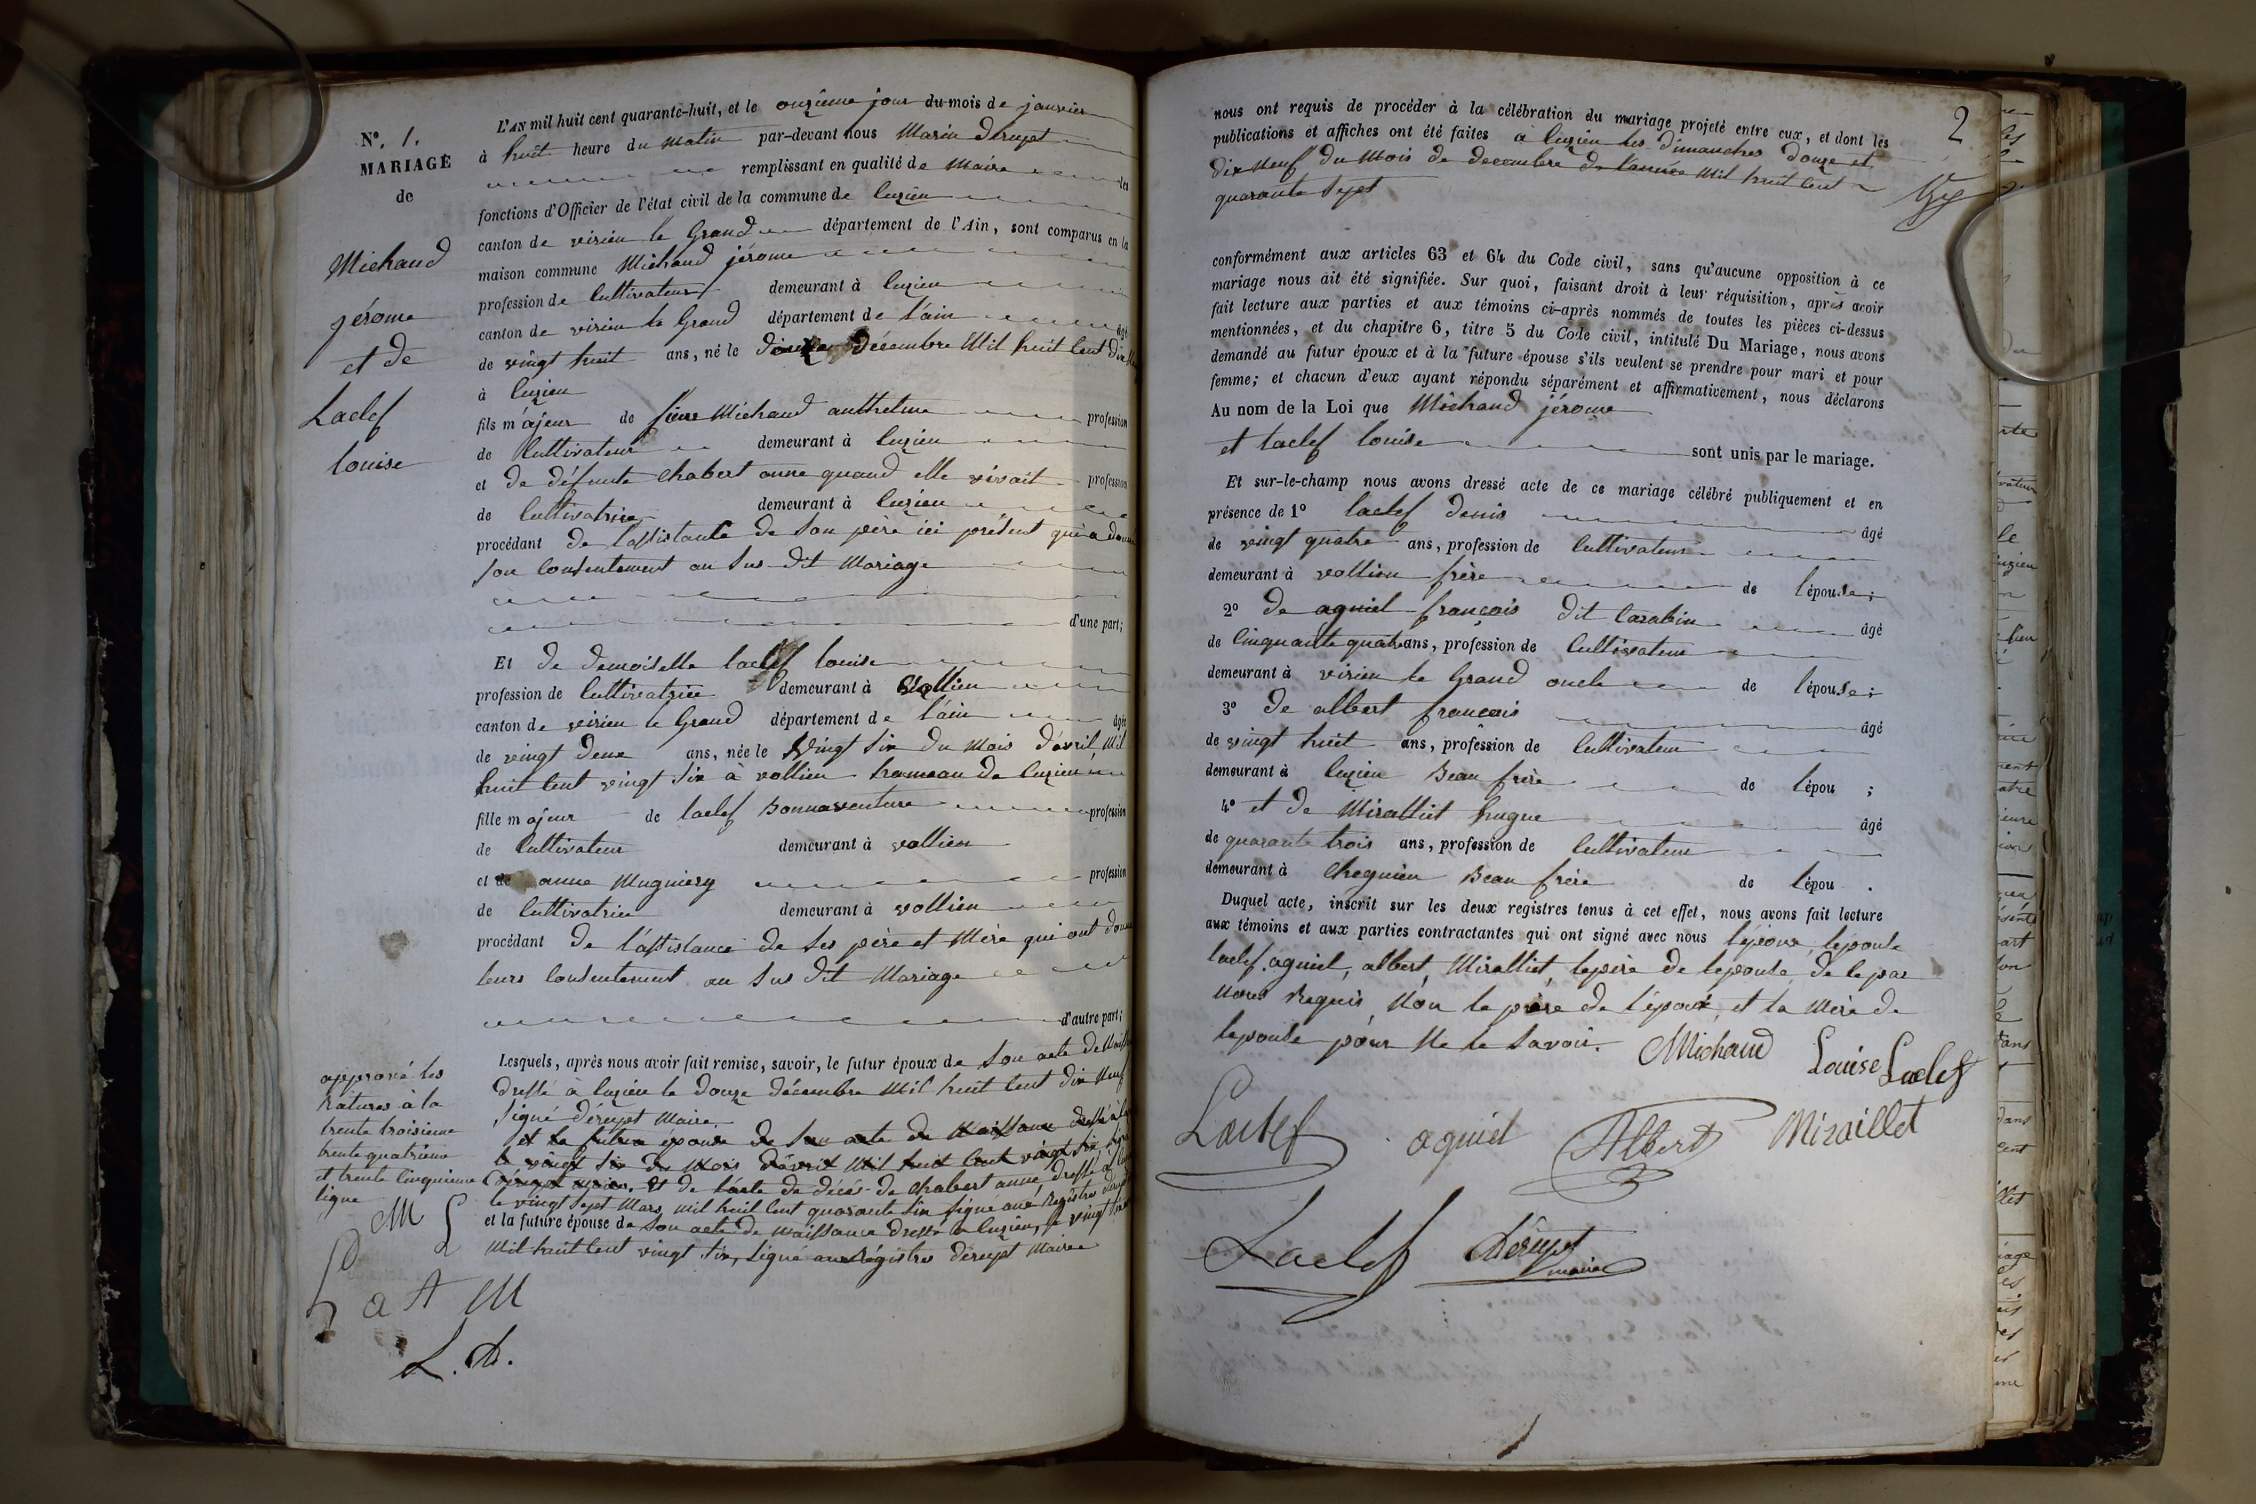 N°. 1.
MARIAGE
de
Michaud
jérome
et de
Laclef
louise
L'AN mil huit cent quarante-huit, et le onzième jour du mois de janvier
à huit heure du matin par-devant nous Marin déruyet
remplissant en qualité de Maire les
fonctions d'Officier de l'état civil de la commune de luzieu
canton de virieu le Grand département de l'Ain, sont comparus en la
maison commune Michaud jérome
profession de Cultivateur demeurant à luzieu
canton de virieu le Grand département de l'ain âgé
de vingt huit ans, né le décembre Mil huit Cent dix
à luzieu
fils majeur de Michaud anthelme profession
de Cultivateur demeurant à luzieu
et de défunte Chabert anne quand elle vivait profession
de Cultivatrice demeurant à luzieu
procédant de l'assistance de son père ici présent qui a donné
son Consentement au sus-dit Mariage
d'une part;
Et de demoiselle laclef louise
profession de Cultivatrice demeurant à vollien
canton de virieu le Grand département de l'ain âgée
de vingt deux ans, née le vingt six du Mois d'avril Mil
huit Cent vingt six à vollien hameau de luzieu
fille majeur de laclef Bonnaventure profession
de Cultivateur demeurant à vollien
et de anne Mugniery profession
de Cultivatrice demeurant à vollien
procédant de l'assistance de ses père et Mère qui ont donné
leurs Consentement au sus dit Mariage
d'autre part;
Lesquels, après nous avoir fait remise, savoir, le futur époux de son acte de
dressé à luzieu le Douze décembre Mil huit Cent dix Neuf
signé déruyet Maire
et la future épouse de son acte de Naissance dressé à
le vingt six du Mois d'avril Mil huit Cent vingt six
et de l'acte de décès de Chabert anne dressé à
le vingt sept Mars mil huit Cent quarante six signé aux Registres
et la future épouse de son acte de Naissance dressé à luzieu, le vingt six
Mil huit Cent vingt six, signé aux Régistres déruyet Maire
approuvé les
ratures à la
trente troisieme
trente quatrieme
et trente Cinquieme
ligne
M L
a A M
L. D.
2
nous ont requis de procéder à la célébration du mariage projeté entre eux, et dont les
publications et affiches ont été faites à luzieu les dimanches douze et
dix Neuf du Mois de decembre de l'année Mil huit Cent
quarante sept
conformément aux articles 63 et 64 du Code civil, sans qu'aucune opposition à ce
mariage nous ait été signifiée. Sur quoi, faisant droit à leur réquisition, après avoir
fait lecture aux parties et aux témoins ci-après nommés de toutes les pièces ci-dessus
mentionnées, et du chapitre 6, titre 5 du Code civil, intitulé Du Mariage, nous avons
demandé au futur époux et à la future épouse s'ils veulent se prendre pour mari et pour
femme; et chacun d'eux ayant répondu séparément et affirmativement, nous déclarons
Au nom de la Loi que Michaud jérome
et laclef louise sont unis par le mariage.
Et sur-le-champ nous avons dressé acte de ce mariage célébré publiquement et en
présence de 1° laclef Denis âgé
de vingt quatre ans, profession de Cultivateur
demeurant à vollien frère de l'épouse;
2° de aguiel françois dit Carabin âgé
de Cinquante quatre ans, profession de Cultivateur
demeurant à virieu le Grand oncle de l'épouse;
3° de albert françois âgé
de vingt huit ans, profession de Cultivateur
demeurant à luzieu Beau frère de l'épou ;
4° et de Miralliet hugue âgé
de quarante trois ans, profession de Cultivateur
demeurant à Chegnieu Beau frère de l'épou .
Duquel acte, inscrit sur les deux registres tenus à cet effet, nous avons fait lecture
aux témoins et aux parties contractantes qui ont signé avec nous l'époux, lepouse
laclef, aguiel, albert, Miralliet, lepère de lepouse, de le par
nous Requis, Non le père de l'époux, et la Mère de
lepouse pour Ne le savoir.
Michaud Louise Laclef
Laclef aguiel Albert Miraillet
Laclef Déruyet
maire